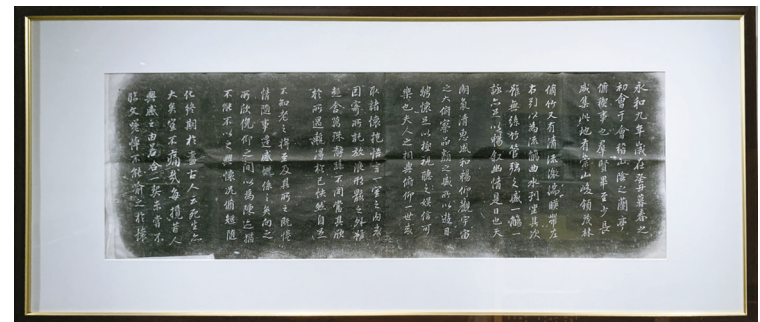 永和九年歲在癸丑暮春之
初會于會稽山陰之蘭亭
脩稧事也羣賢畢至少長
咸集此地有崇山峻領茂林
脩竹又有清流激湍暎帶左
右引以為流觴曲水列坐其次
雖無絲竹管弦之盛一觴一
詠亦足以暢敘幽情是日也天
朗氣清惠風和暢仰觀宇宙
之大俯察品類之盛所以遊目
騁懷足以極視聽之娛信可
樂也夫人之相與俯仰一世或
取諸懷抱悟言一室之內或
因寄所託放浪形骸之外雖
趣舍萬殊靜躁不同當其欣
於所遇暫得於己快然自足
不知老之將至及其所之既惓
情隨事遷感慨係之矣向之
所欣俛仰之間以為陳迹猶
不能不以之興懷況脩短隨
化終期於盡古人云死生亦
大矣豈不痛哉每攬昔人
興感之由若合一契未嘗不
臨文嗟悼不能喻之於懷